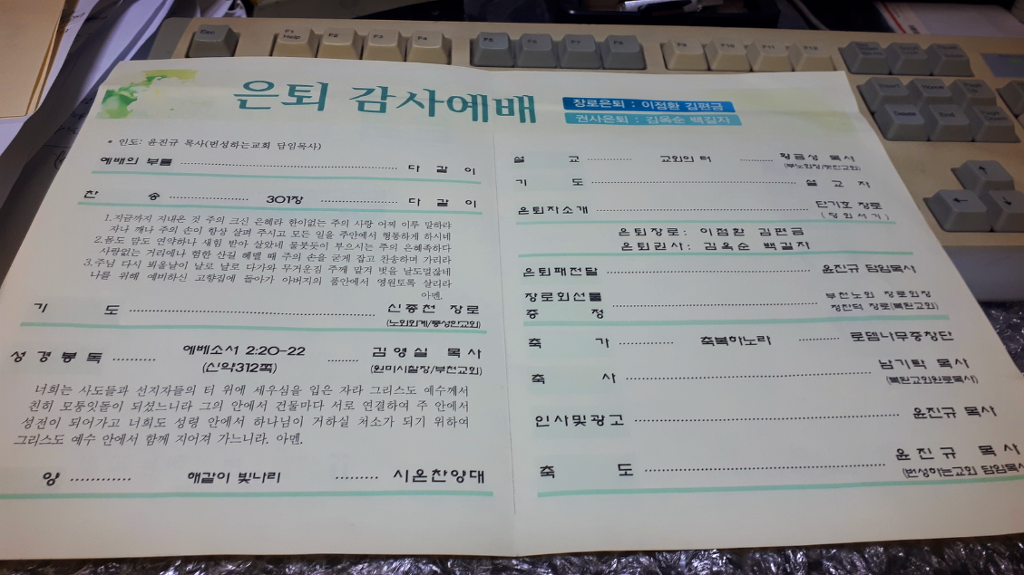 은퇴 감사예배
장로은퇴 : 이점환 김편금
권사은퇴 : 김옥순 백길자
• 인도: 윤진규 목사(번성하는교회 담임목사)
예배의 부름 ············ 다 같 이
찬 송 ············ 301장 ············ 다 같 이
1.지금까지 지내온 것 주의 크신 은혜라 한이없는 주의 사랑 어찌 이루 말하랴
자나 깨나 주의 손이 항상 살펴 주시고 모든 일을 주안에서 형통하게 하시네
2.몸도 맘도 연약하나 새힘 받아 살았네 물붓듯이 부으시는 주의 은혜족하다
사랑없는 거리에나 험한 산길 헤맬 때 주의 손을 굳게 잡고 찬송하며 가리라
3.주님 다시 뵈올날이 날로 날로 다가와 무거운짐 주께 맡겨 벗을 날도멀잖네
나를 위해 예비하신 고향집에 돌아가 아버지의 품안에서 영원토록 살리라
아멘.
기 도 ············ 신종천 장로
(노회회계/동성안교회)
성경봉독 ········ 에베소서 2:20-22 ········ 김영실 목사
(신약312쪽) (원미시찰장/부천교회)
너희는 사도들과 선지자들의 터 위에 세우심을 입은 자라 그리스도 예수께서
친히 모퉁잇돌이 되셨느니라 그의 안에서 건물마다 서로 연결하여 주 안에서
성전이 되어가고 너희도 성령 안에서 하나님이 거하실 처소가 되기 위하여
그리스도 예수 안에서 함께 지어져 가느니라. 아멘.
양 ············ 해같이 빛나리 ········ 시온찬양대
설 교 ········ 교회의 터 ········ 황금성 목사
기 도 ············ 설 교 자
은퇴자소개 ············ 단기호 장로
(당회서기)
은퇴장로: 이점환 김편금
은퇴권사: 김옥순 백길자
은퇴패전달 ············ 윤진규 담임목사
장로회선물 ············ 부천노회 장로회장
증 정 장로(복된교회)
축 가 ········ 축복하노라 ········ 로뎀나무중창단
축 사 ············ 남기탁 목사
(복된교회원로목사)
인사및광고 ············ 윤진규 목사
축 도 ············ 윤진규 목사
(번성하는교회 담임목사)
Esc
F1
Help
F2
F3
F4
F5
F6
F7
F8
F9
F10
F11
F12
Delete
End